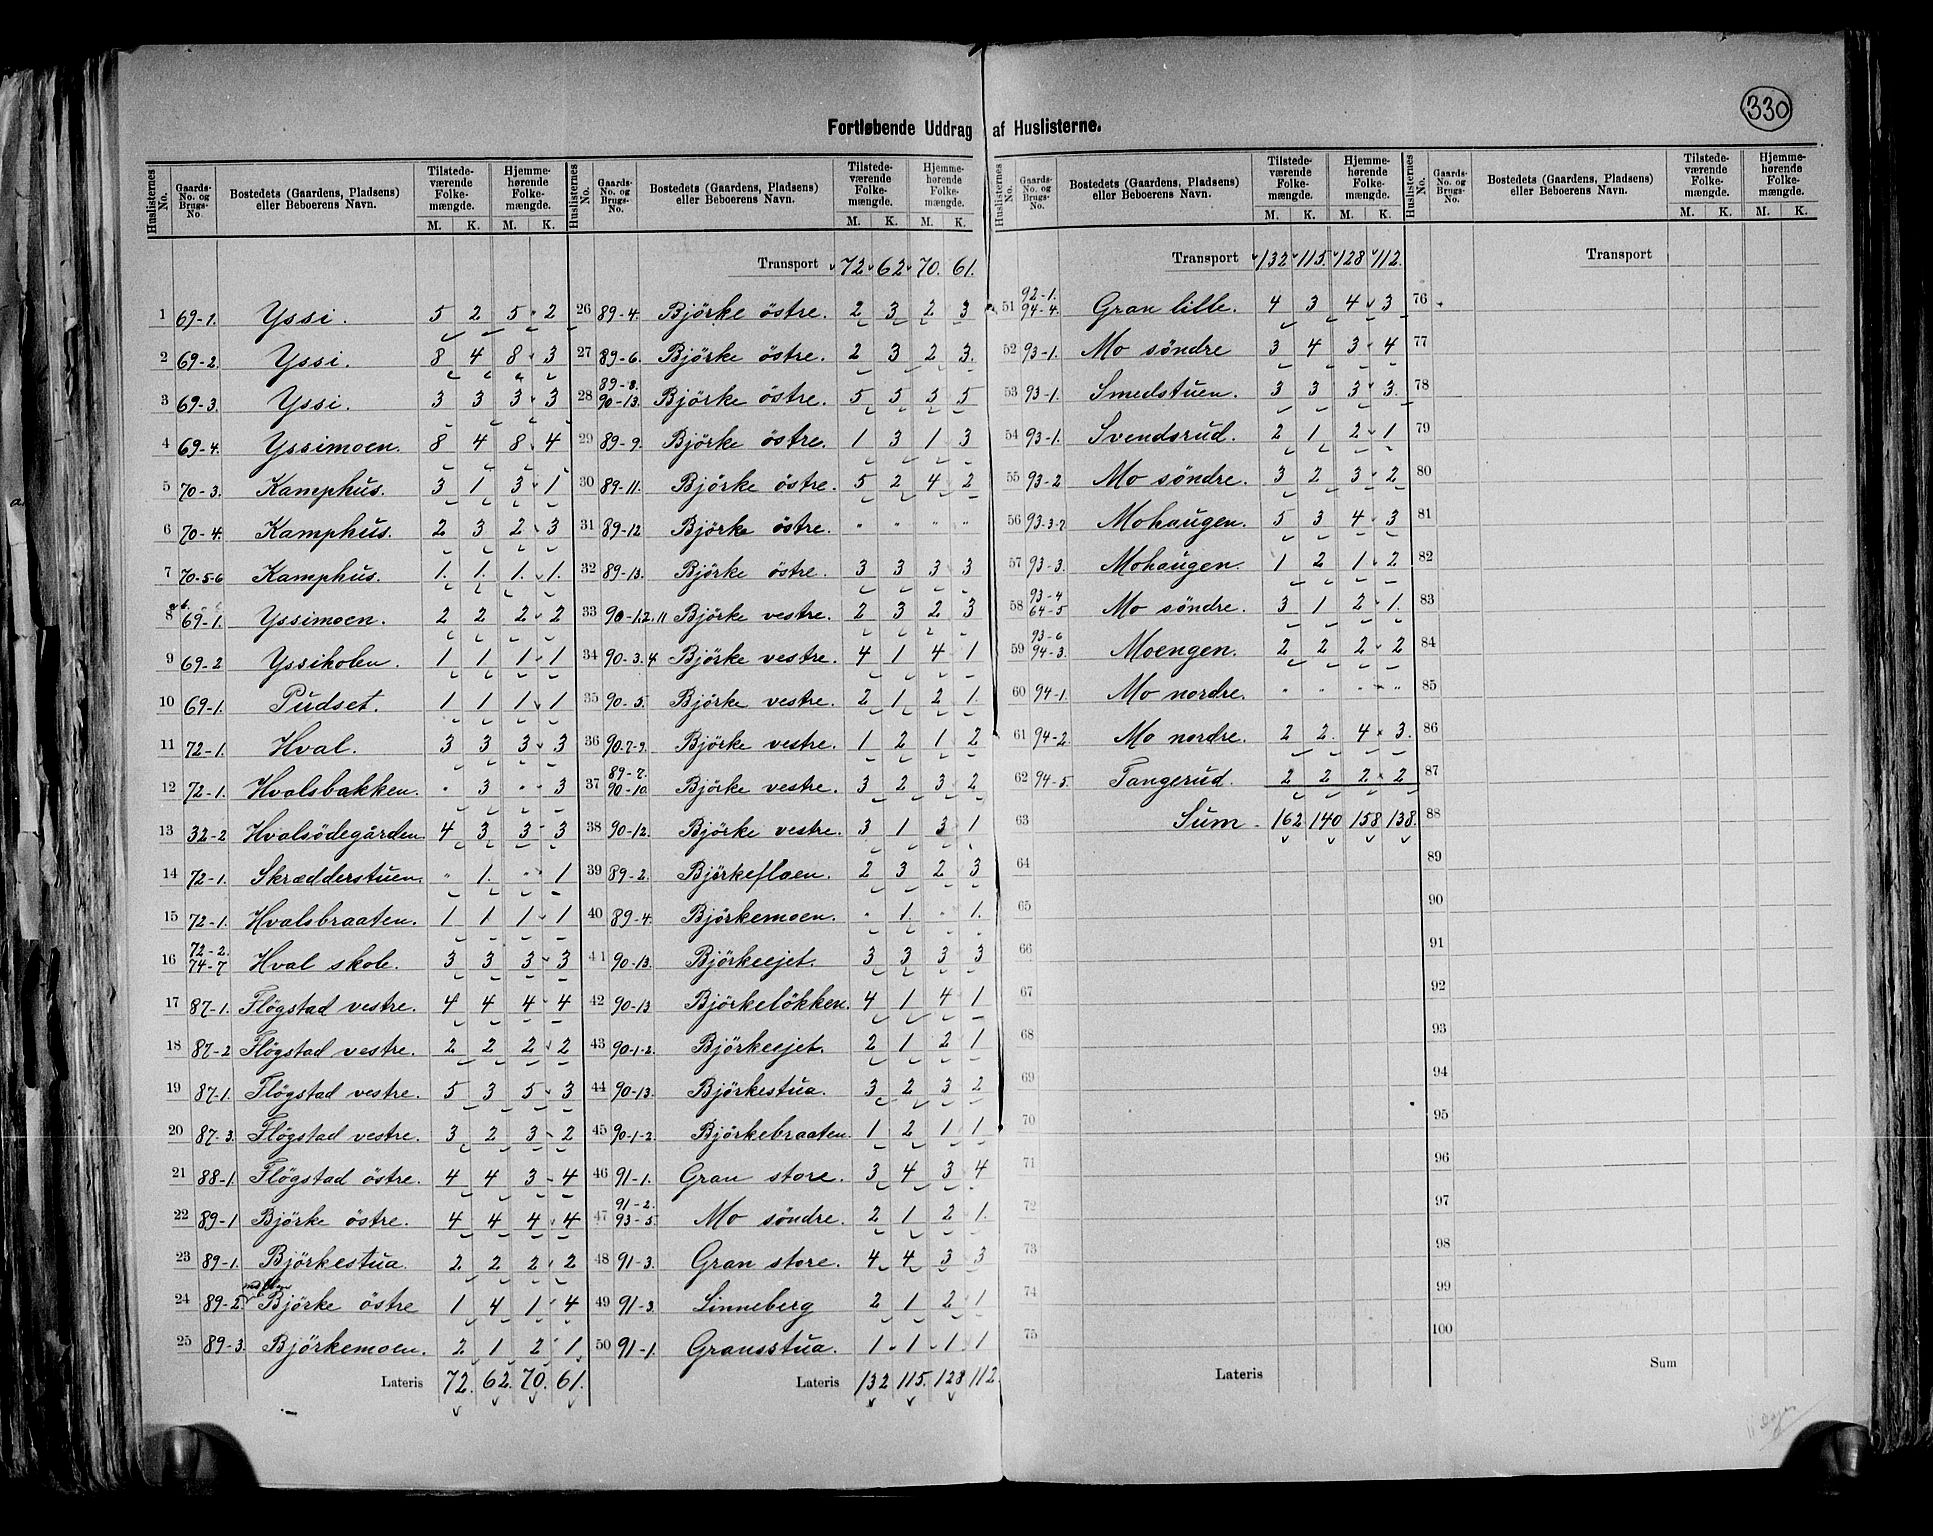 330
Fortløbende Uddrag af Huslisterne.
Huslisternes No. | Gaards-No. og Brugs-No. | Bostedets (Gaardens, Pladsens) eller Beboerens Navn. | Tilstedeværende Folkemængde. M. K. | Hjemmehørende Folkemængde. M. K.
1 69-1. Yssi. 5 2 5 2
2 69-2. Yssi. 8 4 8 3
3 69-3. Yssi. 3 3 3 3
4 69-4. Yssimoen. 8 4 8 4
5 70-3. Kamphus. 3 1 3 1
6 70-4. Kamphus. 2 3 2 3
7 70-5-6 Kamphus. 1. 1. 1. 1.
8 69-1. Yssimoen. 2 2 2 2
9 69-2 Yssiholen. 1 1 1 1
10 69-1. Pudset. 1 1 1 1
11 72-1. Hval. 3 3 3 3
12 72-1. Hvalsbakken. " 3 " 3
13 32-2 Hvalsödegården. 4 3 3 3
14 72-1. Skrædderstuen. " 1. " 1
15 72-1. Hvalsbraaten. 1 1. 1 1
16 72-2. 74-7 Hval skole. 3 3 3 3
17 87-1. Flögstad vestre. 4 4 4 4
18 87-2 Flögstad vestre. 2 2 2 2
19 87-1. Flögstad vestre. 5 3 5 3
20 87-3. Flögstad vestre. 3 2 3 2
21 88-1 Flögstad östre. 4 4 3 4
22 89-1 Björke östre. 4 4 4 4
23 89-1. Björkestua. 2 2 2 2
24 89-2. Björke östre 1 4 1 4
25 89-3. Björkemoen. 2 1 2 1
Lateris 72. 62. 70. 61.
Transport 72 62 70. 61.
26 89-4. Björke östre. 2 3 2 3
27 89-6. Björke östre. 2 3 2 3.
28 89-8. 90-13. Björke östre. 5 5 5 5
29 89-9. Björke östre. 1 3 1 3
30 89-11. Björke östre. 5 2 4 2
31 89-12 Björke östre. " " " "
32 89-13. Björke östre. 3 3 3 3
33 90-1.2.11 Björke vestre. 2 3 2 3
34 90-3.4 Björke vestre. 4 1 4 1
35 90-5. Björke vestre. 2 1 2 1.
36 90-7-9. Björke vestre. 1 2 1 2
37 89-7. 90-10. Björke vestre. 3 2 3 2
38 90-12. Björke vestre. 3 1 3 1
39 89-2. Björkefloen. 2 3 2 3
40 89-4. Björkemoen. " 1. " 1.
41 90-13. Björkeejet. 3 3 3 3
42 90-13 Björkelökken. 4 1 4 1
43 90-1-2. Björkeejet. 2 1 2 1
44 90-13. Björkestua. 3 2 3 2
45 90-1-2. Björkebraaten. 1 2 1 1
46 91-1. Gran store. 3 4 3 4
47 91-2. 93-5. Mo söndre. 2 1 2 1.
48 91-3. Gran store. 4 4 3 3
49 91-3. Linneberg 2 1 2 1
50 91-1. Gransstua. 1 1 1 1
Lateris 132 115. 128 112.
Transport 132 115. 128 112.
51 92-1. 94-4. Gran lille. 4 3 4 3
52 93-1. Mo söndre 3 4 3 4
53 93-1. Smedstuen. 3 3 3 3.
54 93-1. Svendsrud. 2 1 2 1
55 93-2 Mo söndre. 3 2 3 2
56 93-3-2 Mohaugen. 5 3 4 3
57 93-3. Mohaugen. 1 2 1 2
58 93-4 64-5 Mo söndre. 3 1 2 1.
59 93-6 94-3. Moengen. 2 2 2 2
60 94-1. Mo nordre. " " " "
61 94-2. Mo nordre. 2 2. 4 3.
62 94-5. Tangerud. 2 2 2 2
63 Sum 162 140 158 138.
64
65
66
67
68
69
70
71
72
73
74
75
Lateris
Transport
76
77
78
79
80
81
82
83
84
85
86
87
88
89
90
91
92
93
94
95
96
97
98
99
100
Sum